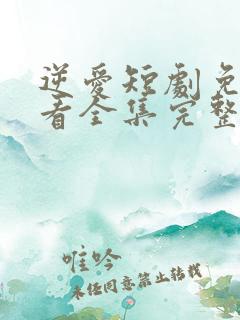 逆愛短劇免
看全集完整
唯吟
未经同意禁止转载